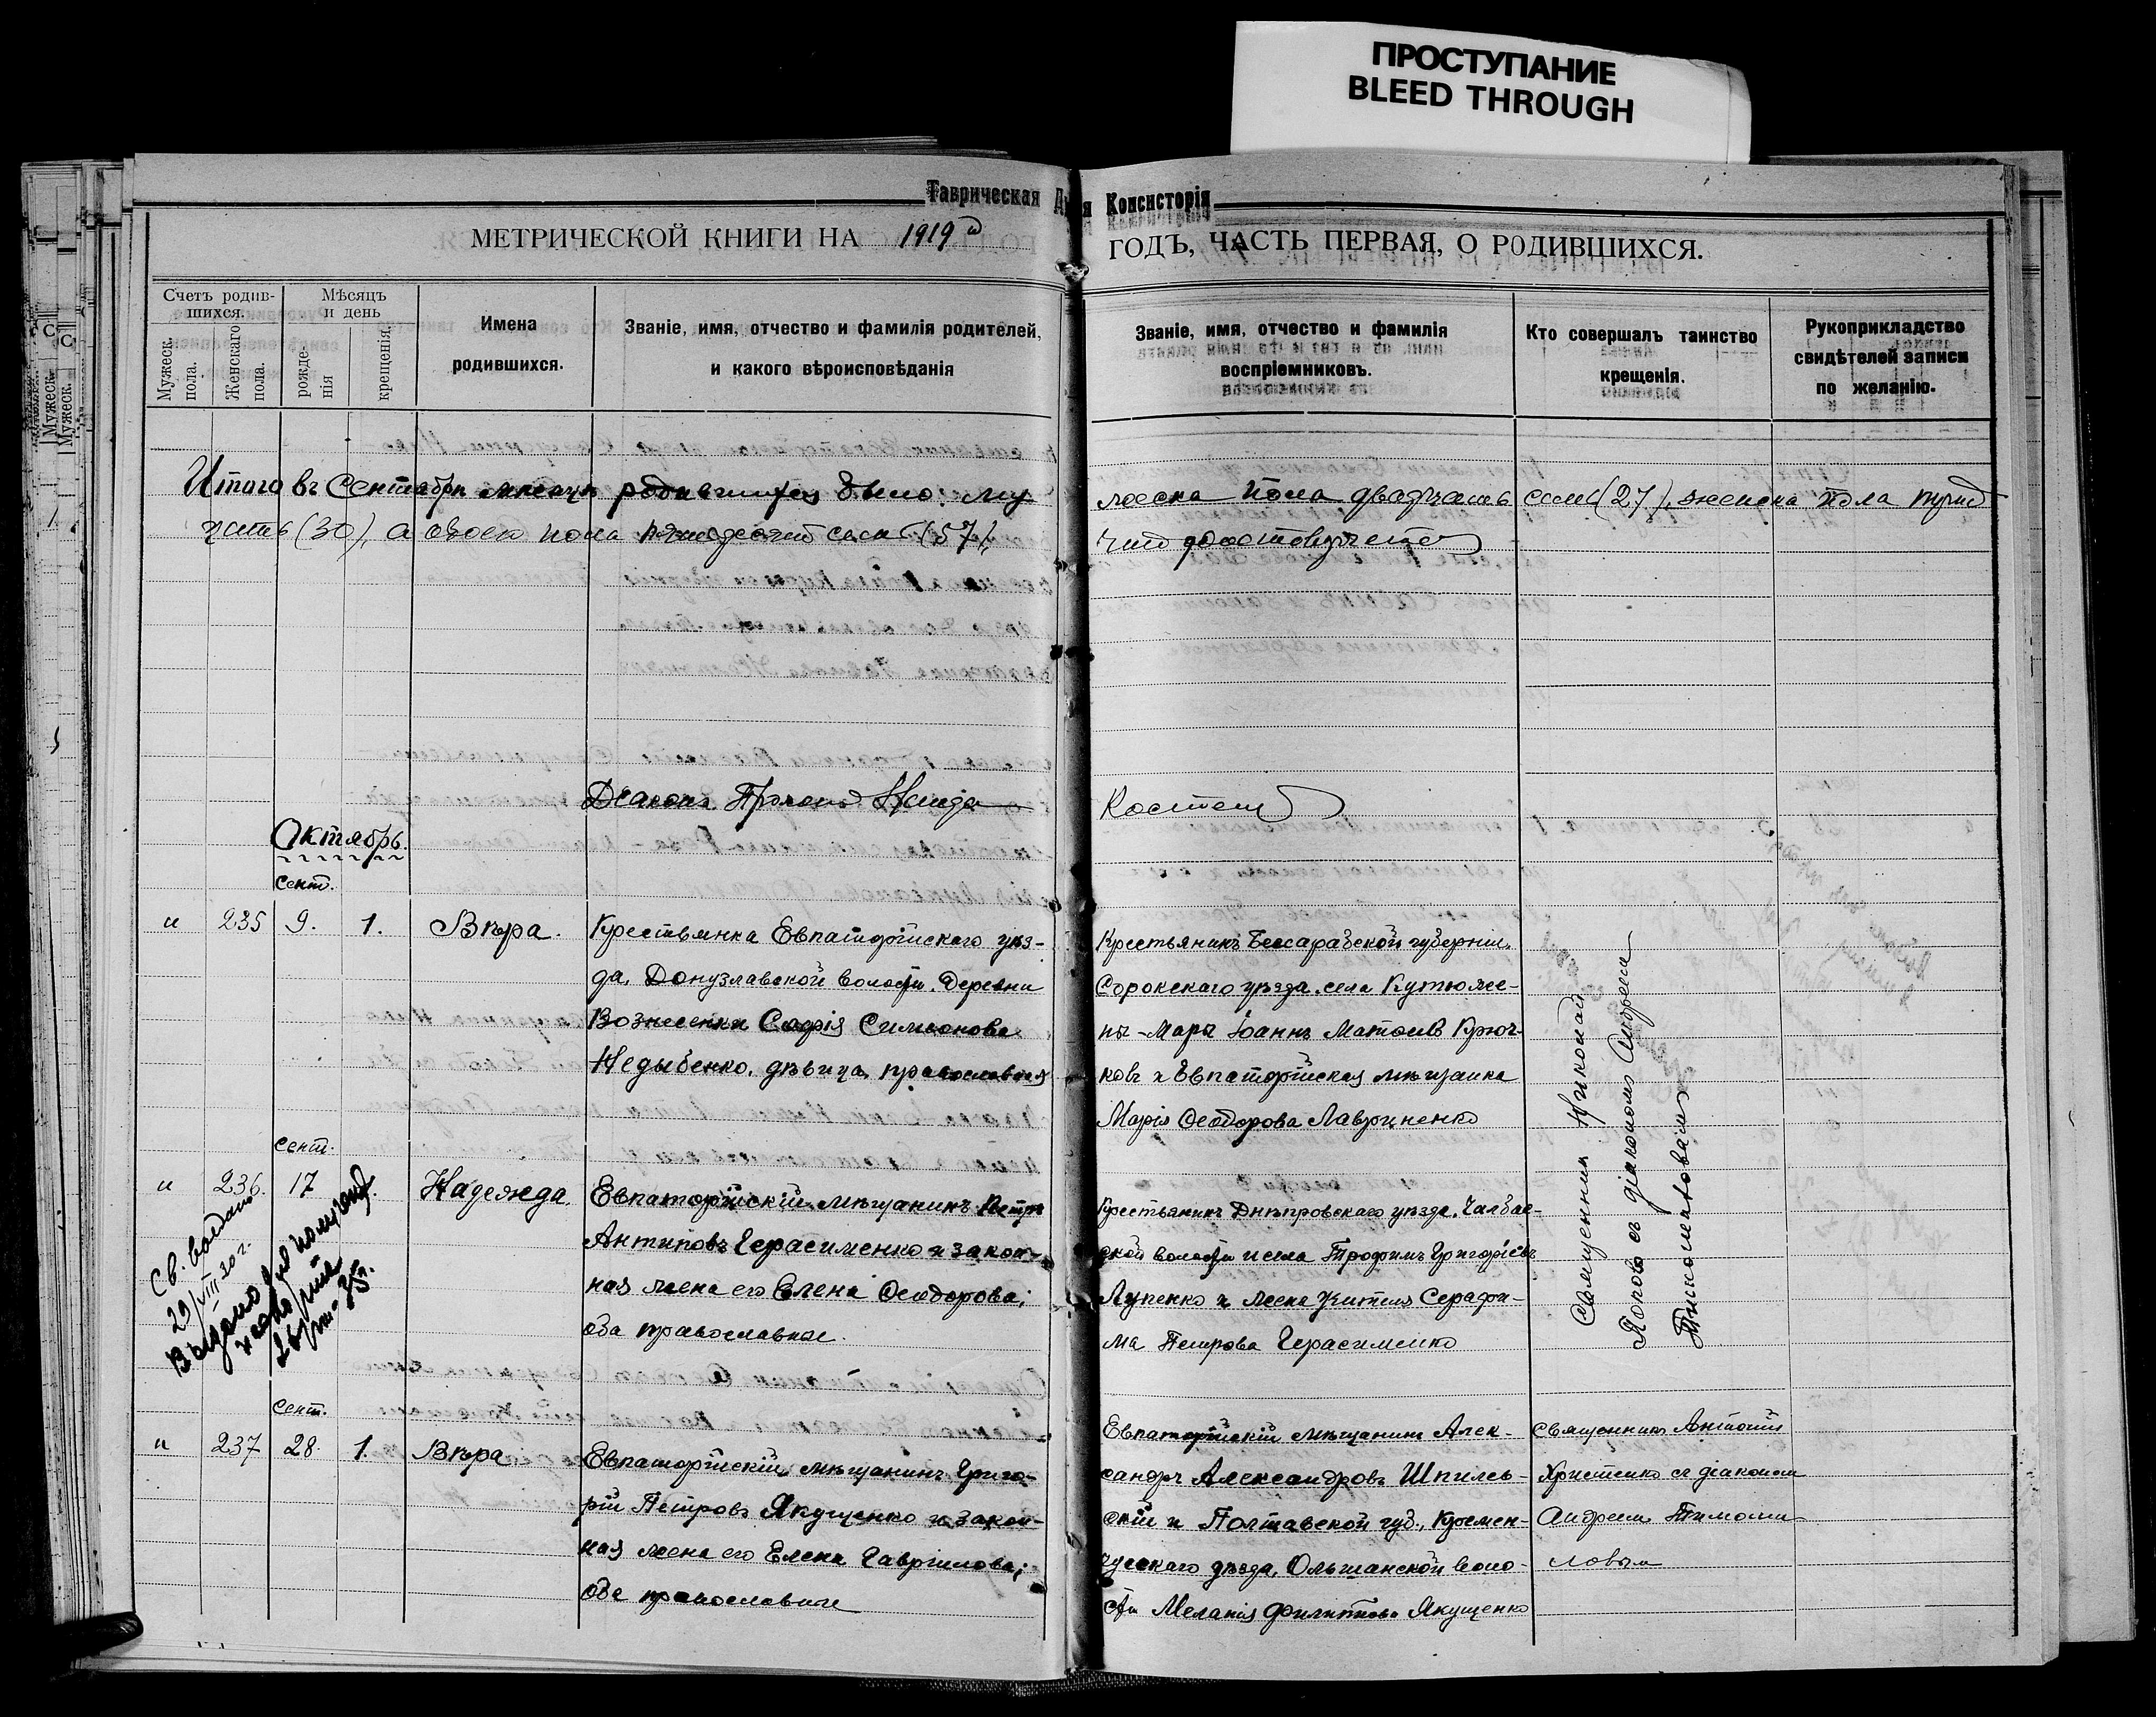 ПРОСТУПАНИЕ
BLEED THROUGH
Таврическая
Консисторія
МЕТРИЧЕСКОЙ КНИГИ НА 1919й
ГОДЪ, ЧАСТЬ ПЕРВАЯ, О РОДИВШИХСЯ.
Счетъ родив-
шихся.
Мужеск.
пола.
Женскаго
пола.
Мѣсяцъ
и день
рожде-
нія
крещенія.
Имена
родившихся.
Званіе, имя, отчество и фамилія родителей,
и какого вѣроисповѣданія
Званіе, имя, отчество и фамилія
воспріемниковъ.
Кто совершалъ таинство
крещенія.
Рукоприкладство
свидѣтелей записи
по желанію.
Итого въ Сентябрѣ мѣсяцѣ родившихся было: му
жеска пола двадцать семь (27), женска пола трид
цать (30), а обоего пола пятьдесятъ семь (57),
Діаконъ
Октябрь.
сент.
" 235 9. 1. Вѣра.
Крестьянка Евпаторійскаго уѣз-
да, Донузлавской волости деревни
Вознесенки Софія Симеонова
Недыбенко, дѣвица, православная
Крестьянинъ Бессарабской губерніи,
Сорокскаго уѣзда села Кутюже-
ны-Мары Іоаннъ Матѳіевъ Крюч-
ковъ и Евпаторійская мѣщанка
Марія Ѳеодорова Лавриненко
Священникъ Николай
Поповъ съ діакономъ Андреемъ
сент.
" 236. 17 Надежда.
Евпаторійскій мѣщанинъ Петръ
Антиповъ Герасименко и закон-
ная жена его Елена Ѳеодорова;
оба православные.
Крестьянинъ Днѣпровскаго уѣзда, Чалбас-
ской волости и села Трофимъ Григоріевъ
Лупенко и жена учителя Серафи-
ма Петрова Герасименко
Св. выдано
29/VIII 20 г.
Выдано
сент.
" 237 28. 1. Вѣра
Евпаторійскій мѣщанинъ Григо-
рій Петровъ Якущенко и закон-
ная жена его Елена Гавріилова;
оба православные
Евпаторійскій мѣщанинъ Алек-
сандръ Александровъ Шпилев-
скій и Полтавской губ., Кремен-
чугскаго уѣзда, Ольшанской воло-
сти Меланія Филиппова Якущенко
Священникъ Антоній
Христенко съ діакономъ
Андреемъ